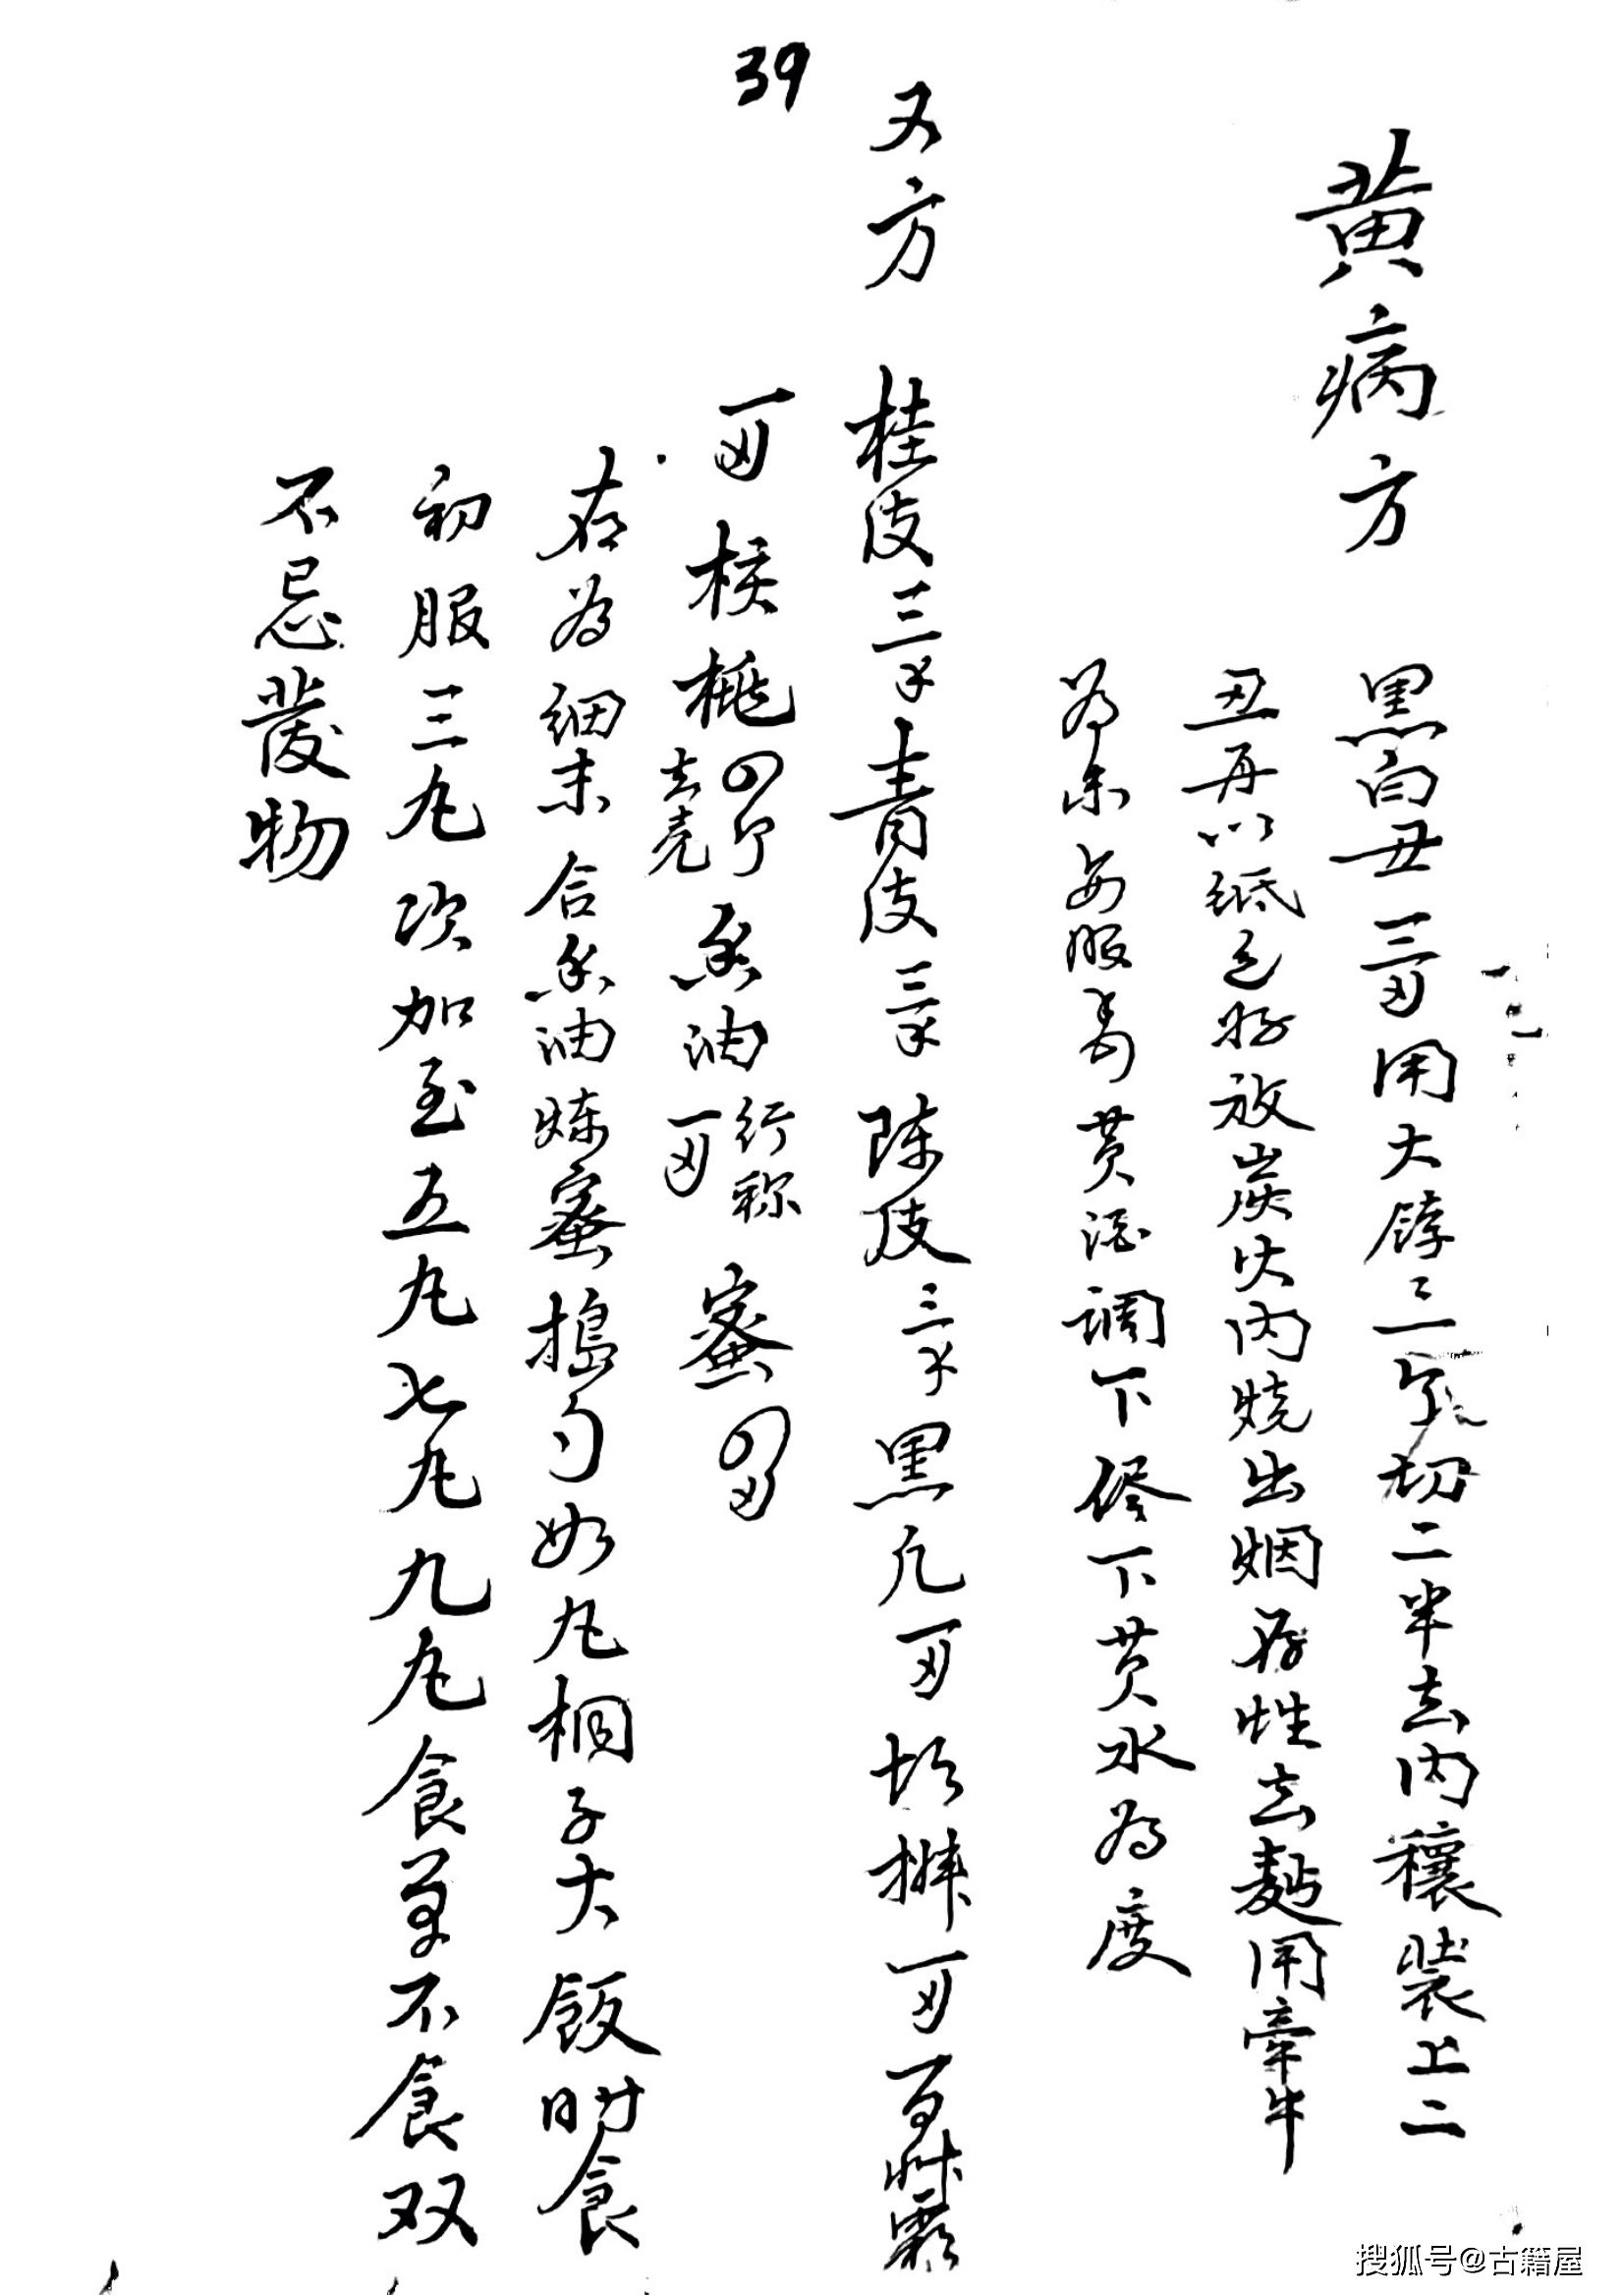 39
黄病方
黑白丑三两用大饽二个切二半去内穰装上二
丑再以纸包好放炭火内烧出烟存性去麸用牵牛
为末每服 黄酒调下 下黄水为度
又方 桂皮三 青皮三 陈皮三 黑凡 百草霜
一两 核桃四个去壳 香油一两行称 蜜四两
右为细末合香油炼蜜捣匀如丸桐子大饭时食
初服三丸次加至五丸七丸九丸食单不食双
不忌发物
搜狐号@古籍屋